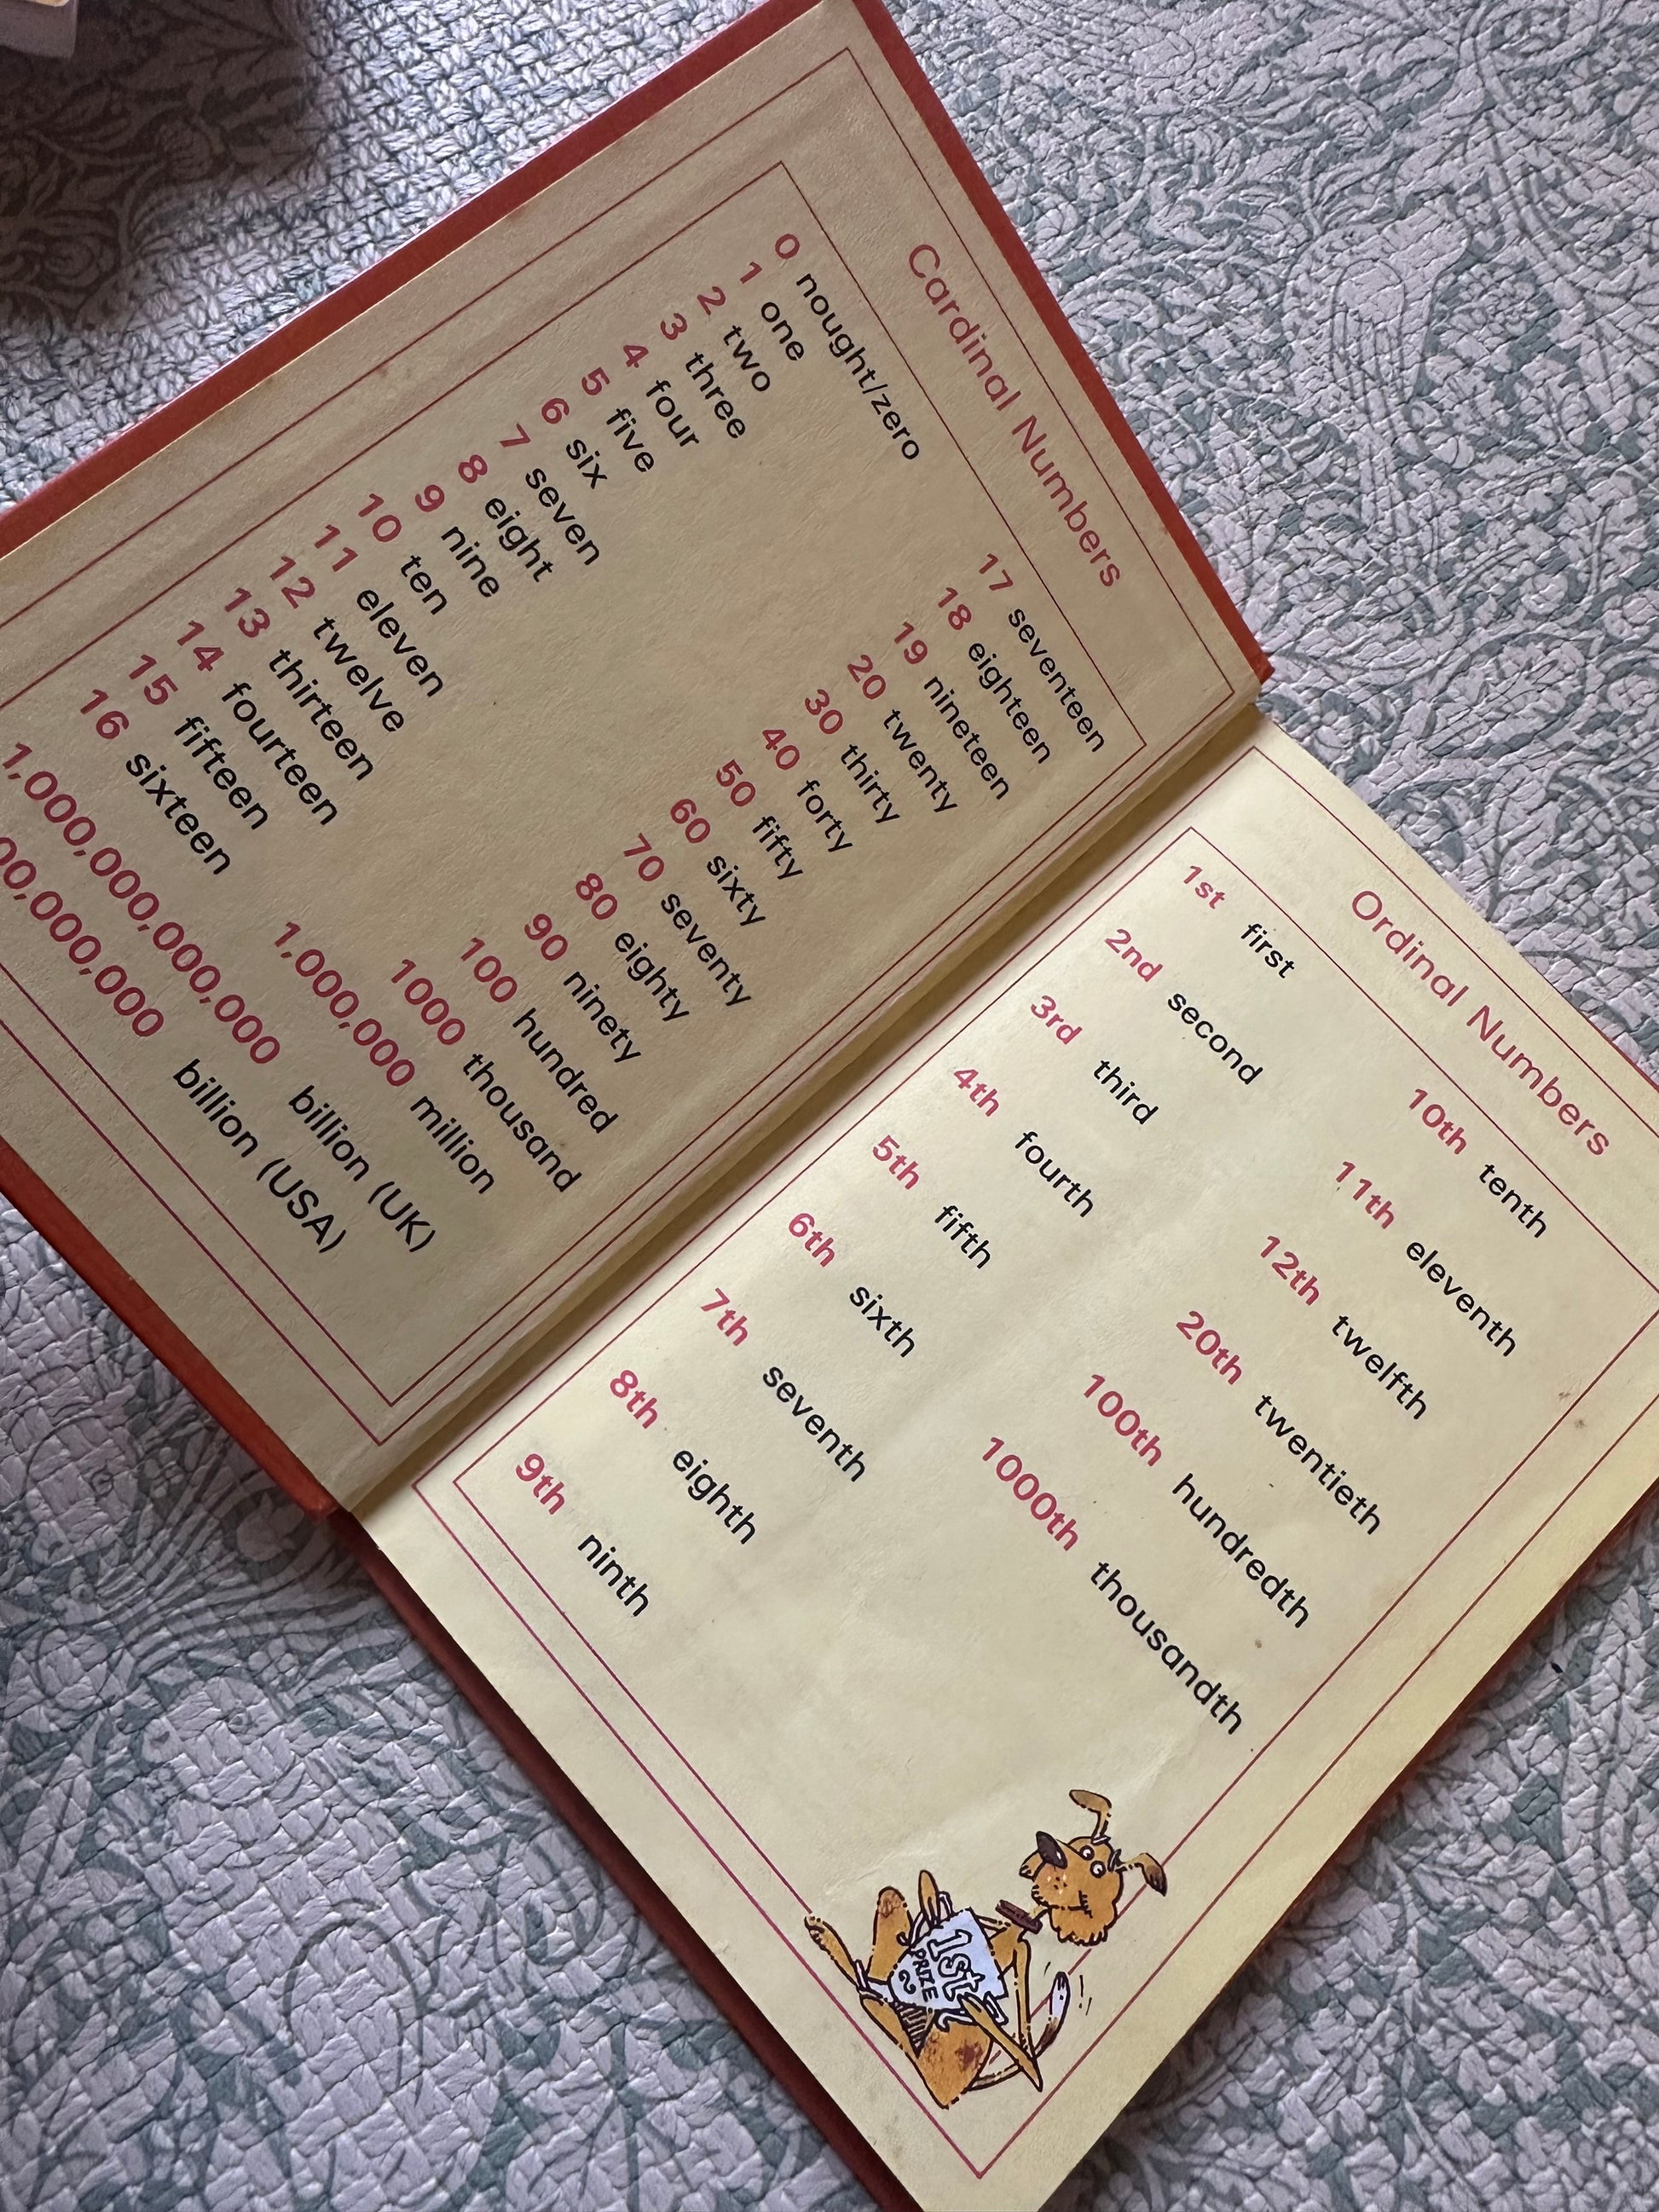 Cardinal Numbers
0 nought/zero
1 one
2 two
3 three
4 four
5 five
6 six
7 seven
8 eight
9 nine
10 ten
11 eleven
12 twelve
13 thirteen
14 fourteen
15 fifteen
16 sixteen
17 seventeen
18 eighteen
19 nineteen
20 twenty
30 thirty
40 forty
50 fifty
60 sixty
70 seventy
80 eighty
90 ninety
100 hundred
1000 thousand
1,000,000 million
1,000,000,000,000 billion (UK)
00,000,000 billion (USA)
Ordinal Numbers
1st first
2nd second
3rd third
4th fourth
5th fifth
6th sixth
7th seventh
8th eighth
9th ninth
10th tenth
11th eleventh
12th twelfth
20th twentieth
100th hundredth
1000th thousandth
1st
PRIZE